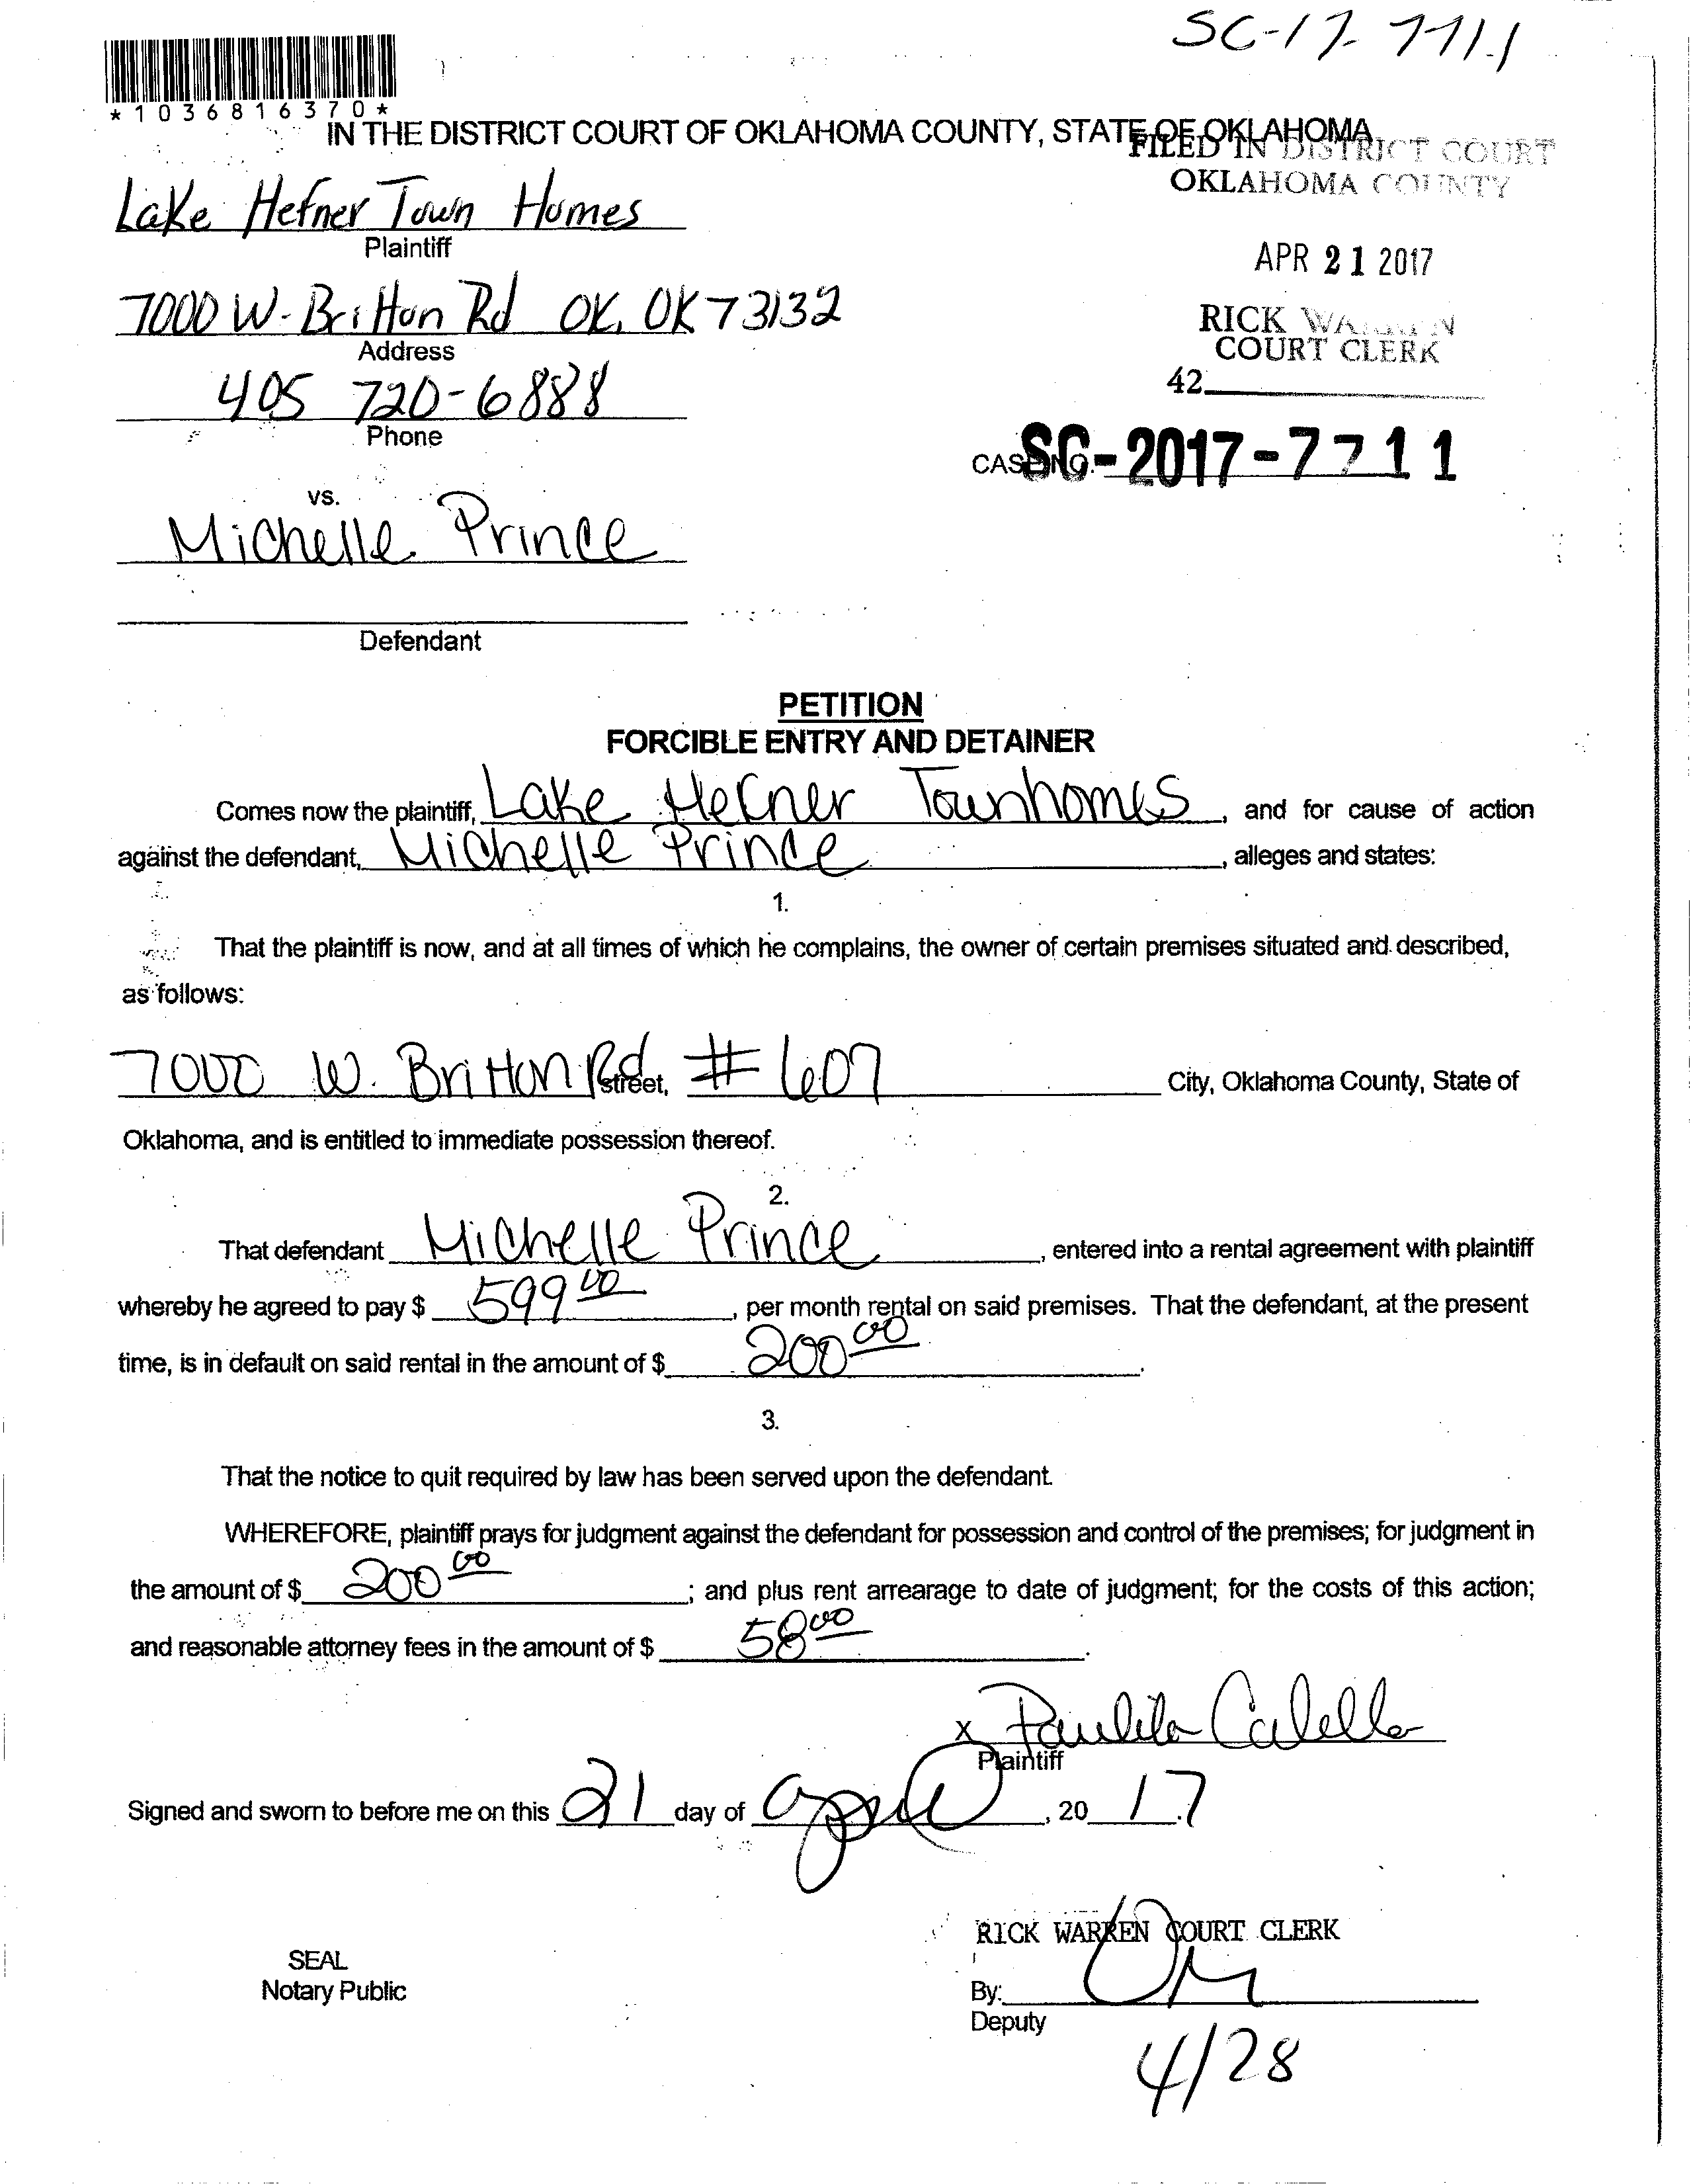 SC-17-7711
*1036816370*
IN THE DISTRICT COURT OF OKLAHOMA COUNTY, STATE OF OKLAHOMA
FILED IN DISTRICT COURT
OKLAHOMA COUNTY
Lake Hefner Town Homes
Plaintiff
APR 21 2017
7000 W. Britton Rd OK, OK 73132
Address
RICK WARREN
COURT CLERK
42
405 720-6888
Phone
CASE NO. SC-2017-7711
vs.
Michelle Prince
Defendant
PETITION
FORCIBLE ENTRY AND DETAINER
Comes now the plaintiff, Lake Hefner Townhomes, and for cause of action
against the defendant, Michelle Prince, alleges and states:
1.
That the plaintiff is now, and at all times of which he complains, the owner of certain premises situated and described,
as follows:
7000 W. Britton Rd street, # 607 City, Oklahoma County, State of
Oklahoma, and is entitled to immediate possession thereof.
2.
That defendant Michelle Prince, entered into a rental agreement with plaintiff
whereby he agreed to pay $ 599 00, per month rental on said premises. That the defendant, at the present
time, is in default on said rental in the amount of $ 200 00.
3.
That the notice to quit required by law has been served upon the defendant.
WHEREFORE, plaintiff prays for judgment against the defendant for possession and control of the premises; for judgment in
the amount of $ 200 00; and plus rent arrearage to date of judgment; for the costs of this action;
and reasonable attorney fees in the amount of $ 58 00.
x
Plaintiff
Signed and sworn to before me on this 21 day of April, 20 17
RICK WARREN COURT CLERK
SEAL
Notary Public
By:
Deputy
4/28